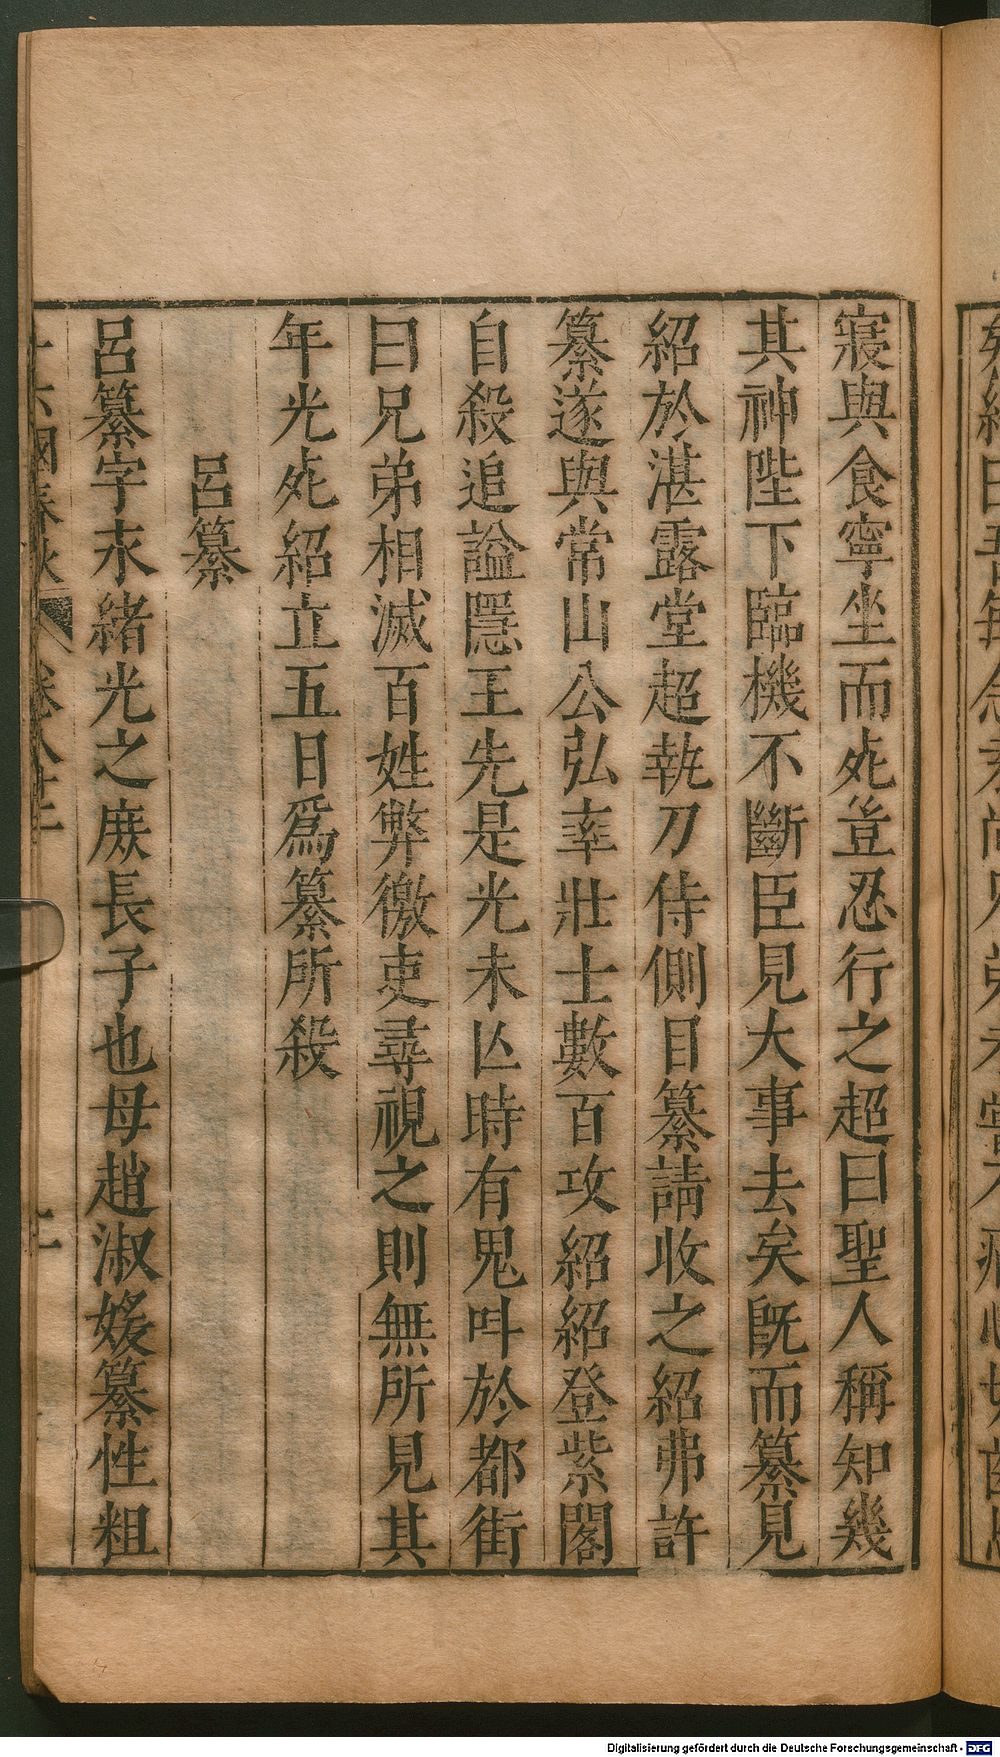 寢與食寧坐而死豈忍行之超曰聖人稱知幾
其神陛下臨機不斷臣見大事去矣旣而纂見
紹於湛露堂超執刀侍側目纂請收之紹弗許
纂遂與常山公弘率壯士數百攻紹紹登紫閣
自殺追謚隱王先是光未亾時有鬼呌於都街
曰兄弟相滅百姓弊徼吏尋視之則無所見其
年光死紹立五日爲纂所殺
呂纂
呂纂字永緒光之庻長子也母趙淑媛纂性粗
十六國春秋 卷八十三 二
Digitalisierung gefördert durch die Deutsche Forschungsgemeinschaft - DFG